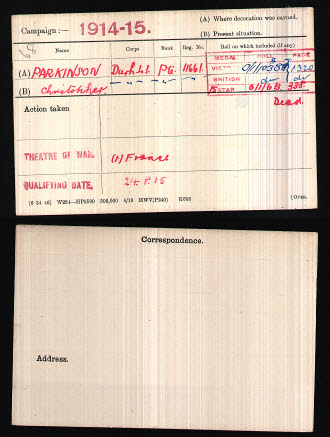 Campaign:— 1914-15.
(A) Where decoration was earned.
(B) Present situation.
Name Corps Rank Reg. No. Roll on which included (if any)
MEDAL ROLL PAGE
(A) PARKINSON Durh. L.I. Pte. 11661 VICTORY 1320
(B) Christopher " " " " BRITISH do do
15 STAR 336
Action taken
Dead.
THEATRE OF WAR. (1) France
QUALIFYING DATE. 24.8.15
(6 34 46) W234—HP5590 500,000 4/19 HWV(P240) K608 [Over.
Correspondence.
Address.